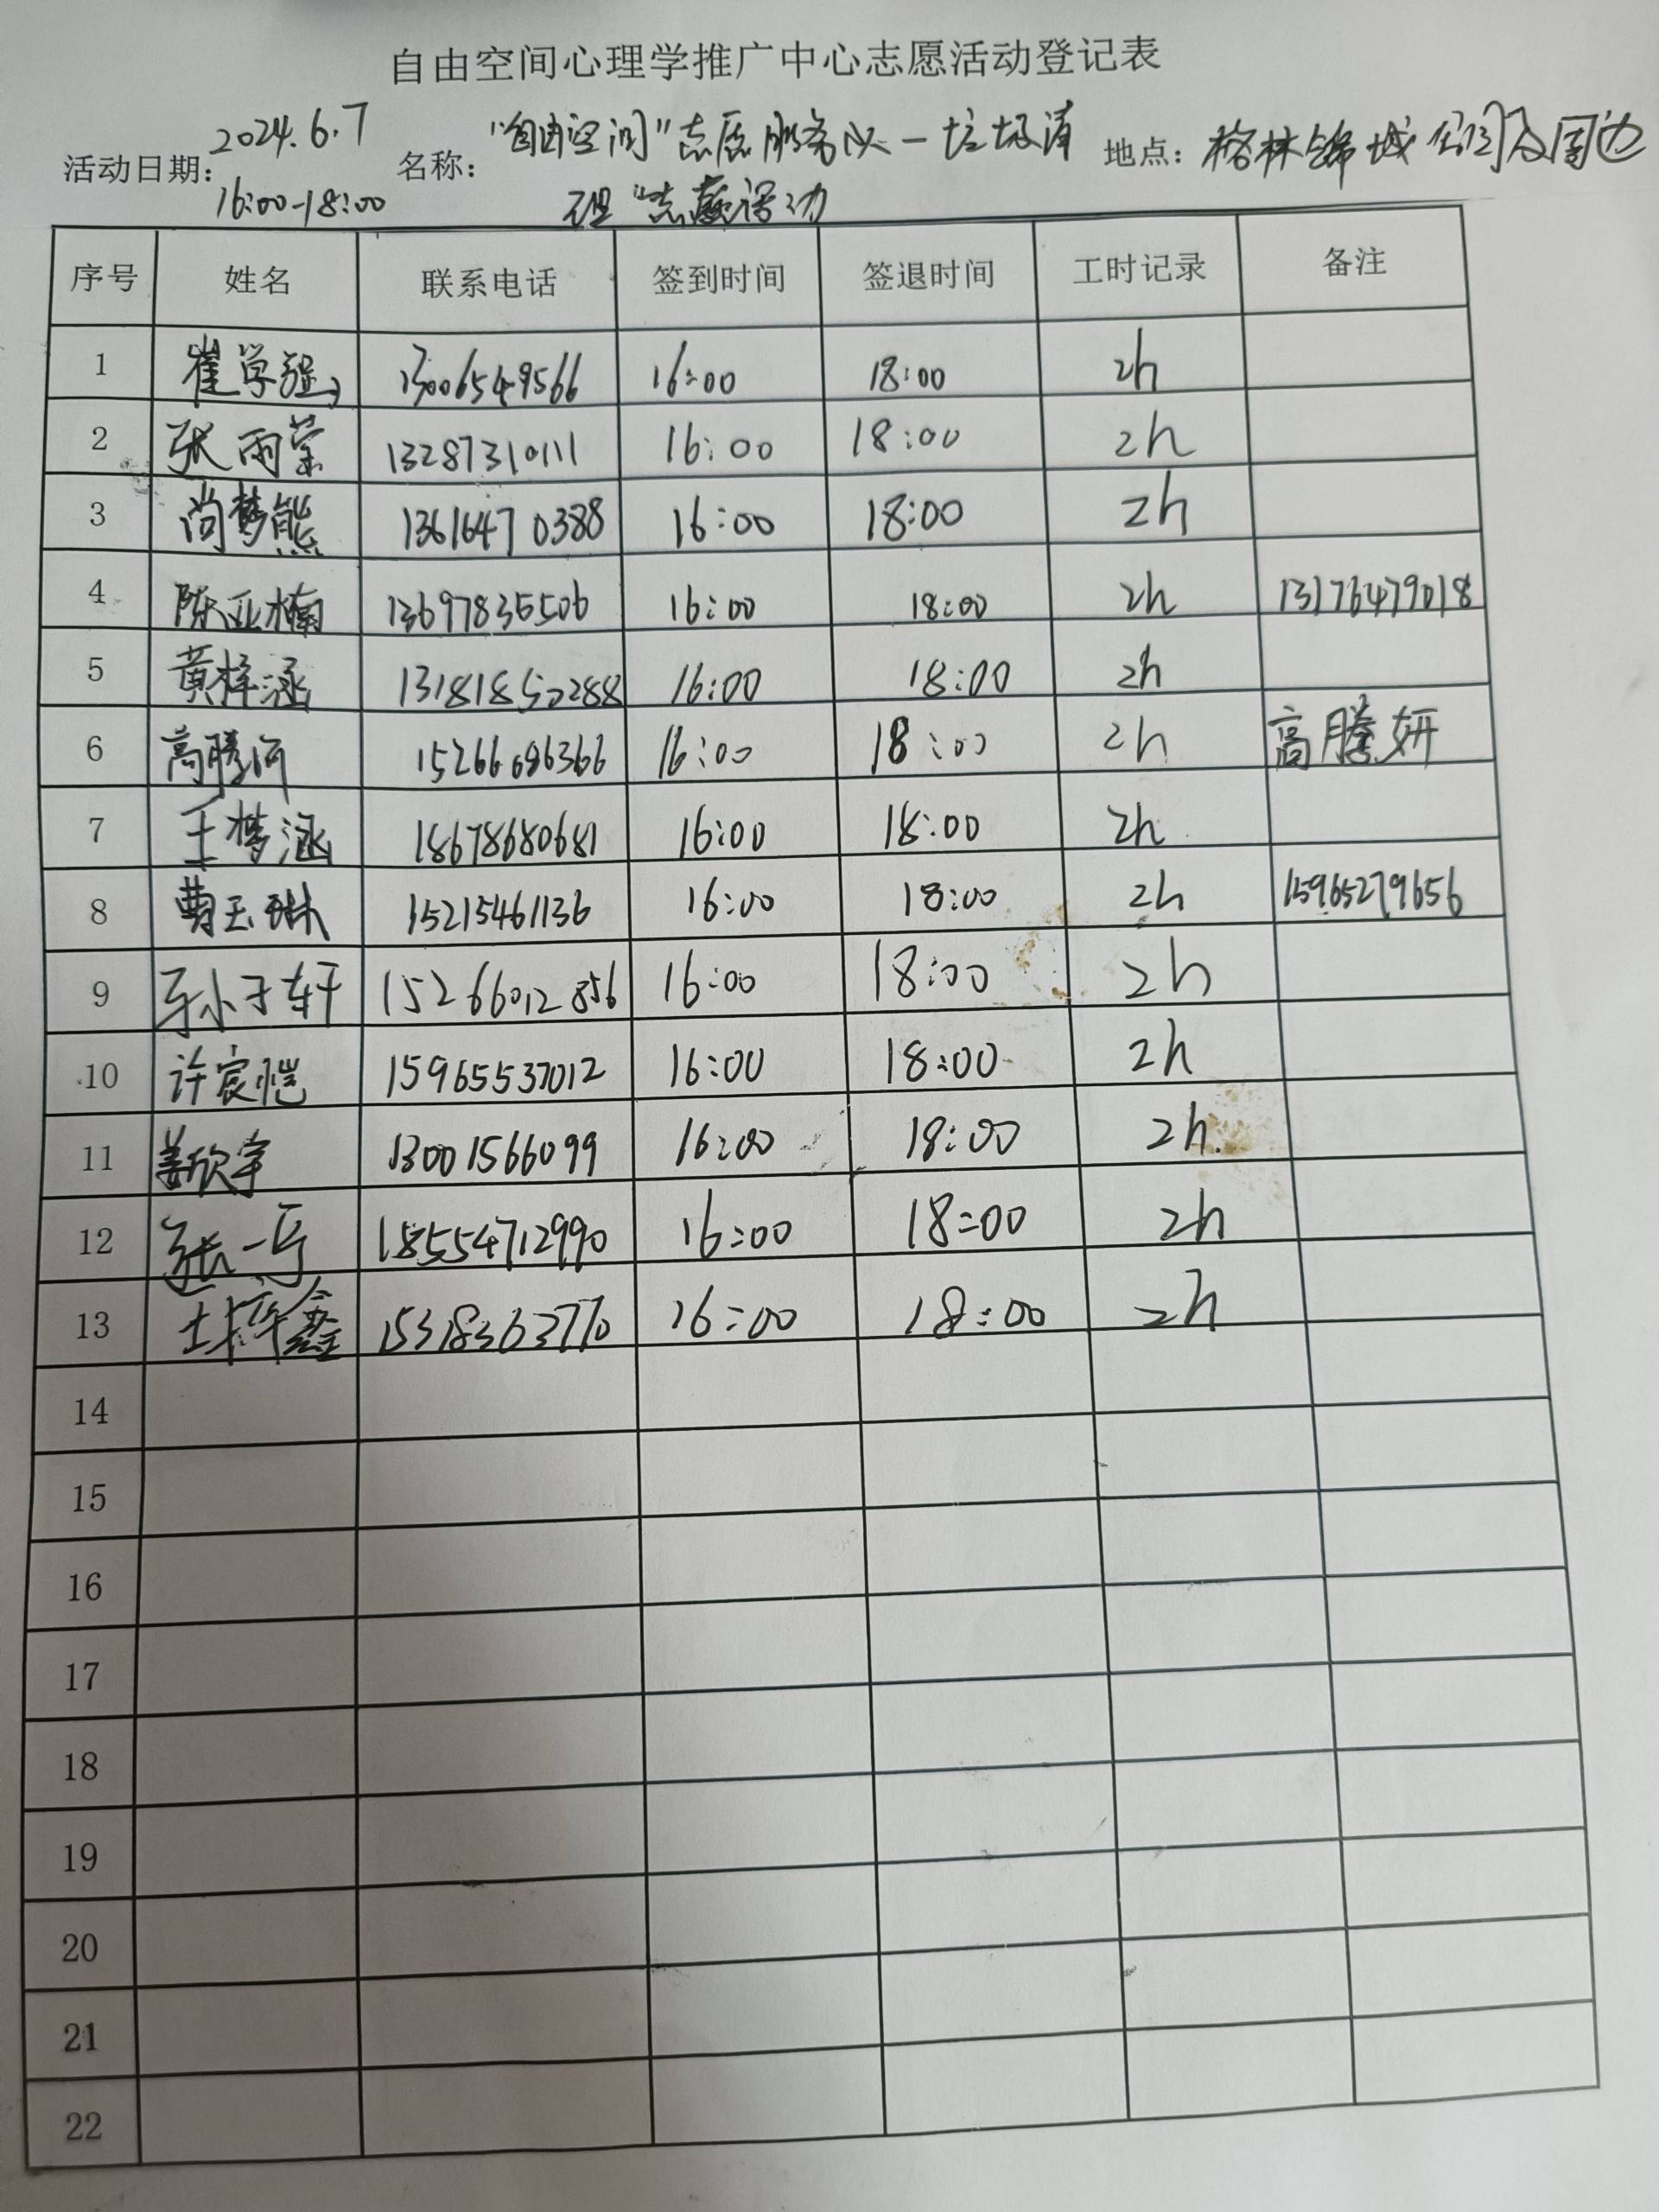 自由空间心理学推广中心志愿活动登记表
活动日期： 2024.6.7 16:00-18:00 名称： "自由空间"志愿服务队一垃圾清理"志愿活动 地点： 格林锦城 公司及周边
序号 姓名 联系电话 签到时间 签退时间 工时记录 备注
1 崔学强 13006549566 16:00 18:00 2h
2 张雨荣 13287310111 16:00 18:00 2h
3 尚梦熊 13616470388 16:00 18:00 2h
4 陈亚楠 13697835506 16:00 18:00 2h 13176479018
5 黄梓涵 13181850288 16:00 18:00 2h
6 高腾河 15266686366 16:00 18:00 2h 高腾妍
7 王梦涵 18678680681 16:00 18:00 2h
8 曹玉琳 15215461136 16:00 18:00 2h 15965279656
9 孙子轩 15266012856 16:00 18:00 2h
10 许宸恺 15965537012 16:00 18:00 2h
11 姜欣宇 13001566099 16:00 18:00 2h
12 张一 18554712990 16:00 18:00 2h
13 鑫 15318363770 16:00 18:00 2h
14
15
16
17
18
19
20
21
22